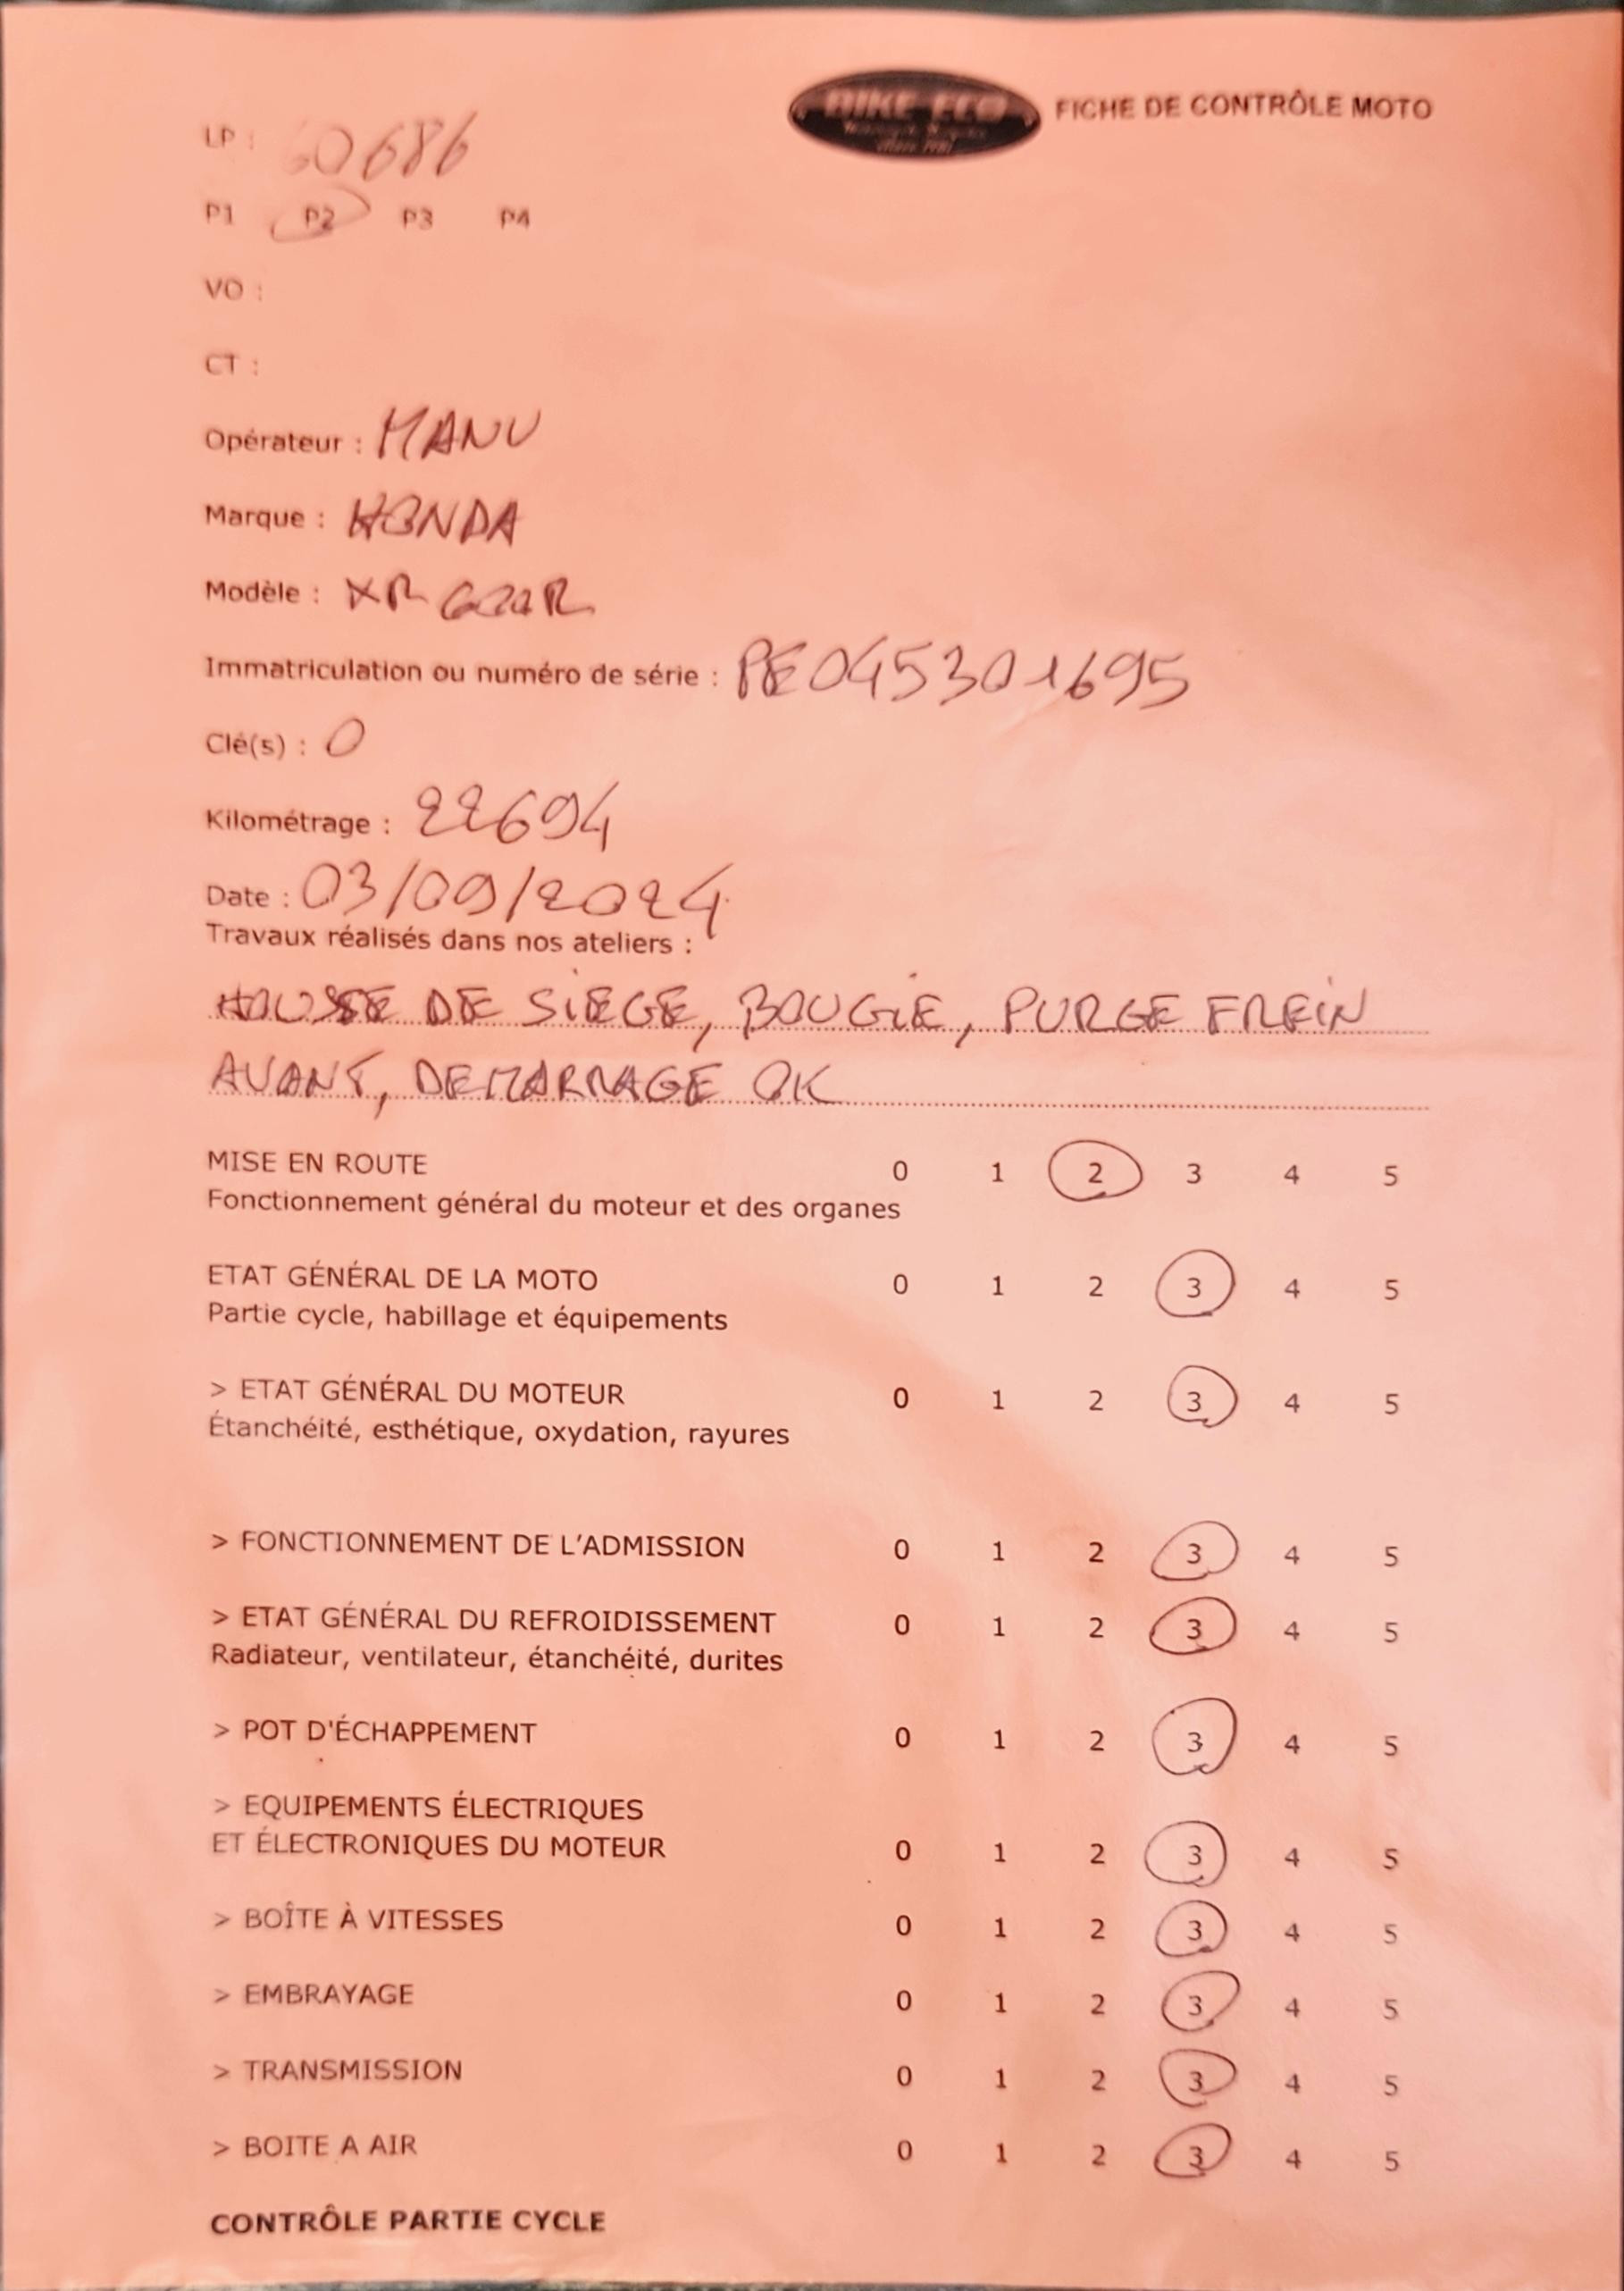 BIKE ECO
FICHE DE CONTRÔLE MOTO
LP : 60686
P1 P2 P3 P4
VO :
CT :
Opérateur : MANU
Marque : HONDA
Modèle : XR 600R
Immatriculation ou numéro de série : PE045301695
Clé(s) : 0
Kilométrage : 22694
Date : 03/09/2024
Travaux réalisés dans nos ateliers :
HOUSSE DE SIEGE, BOUGIE, PURGE FREIN
AVANT, DEMARRAGE OK
MISE EN ROUTE 0 1 2 3 4 5
Fonctionnement général du moteur et des organes
ETAT GÉNÉRAL DE LA MOTO 0 1 2 3 4 5
Partie cycle, habillage et équipements
> ETAT GÉNÉRAL DU MOTEUR 0 1 2 3 4 5
Étanchéité, esthétique, oxydation, rayures
> FONCTIONNEMENT DE L'ADMISSION 0 1 2 3 4 5
> ETAT GÉNÉRAL DU REFROIDISSEMENT 0 1 2 3 4 5
Radiateur, ventilateur, étanchéité, durites
> POT D'ÉCHAPPEMENT 0 1 2 3 4 5
> EQUIPEMENTS ÉLECTRIQUES
ET ÉLECTRONIQUES DU MOTEUR 0 1 2 3 4 5
> BOÎTE À VITESSES 0 1 2 3 4 5
> EMBRAYAGE 0 1 2 3 4 5
> TRANSMISSION 0 1 2 3 4 5
> BOITE A AIR 0 1 2 3 4 5
CONTRÔLE PARTIE CYCLE